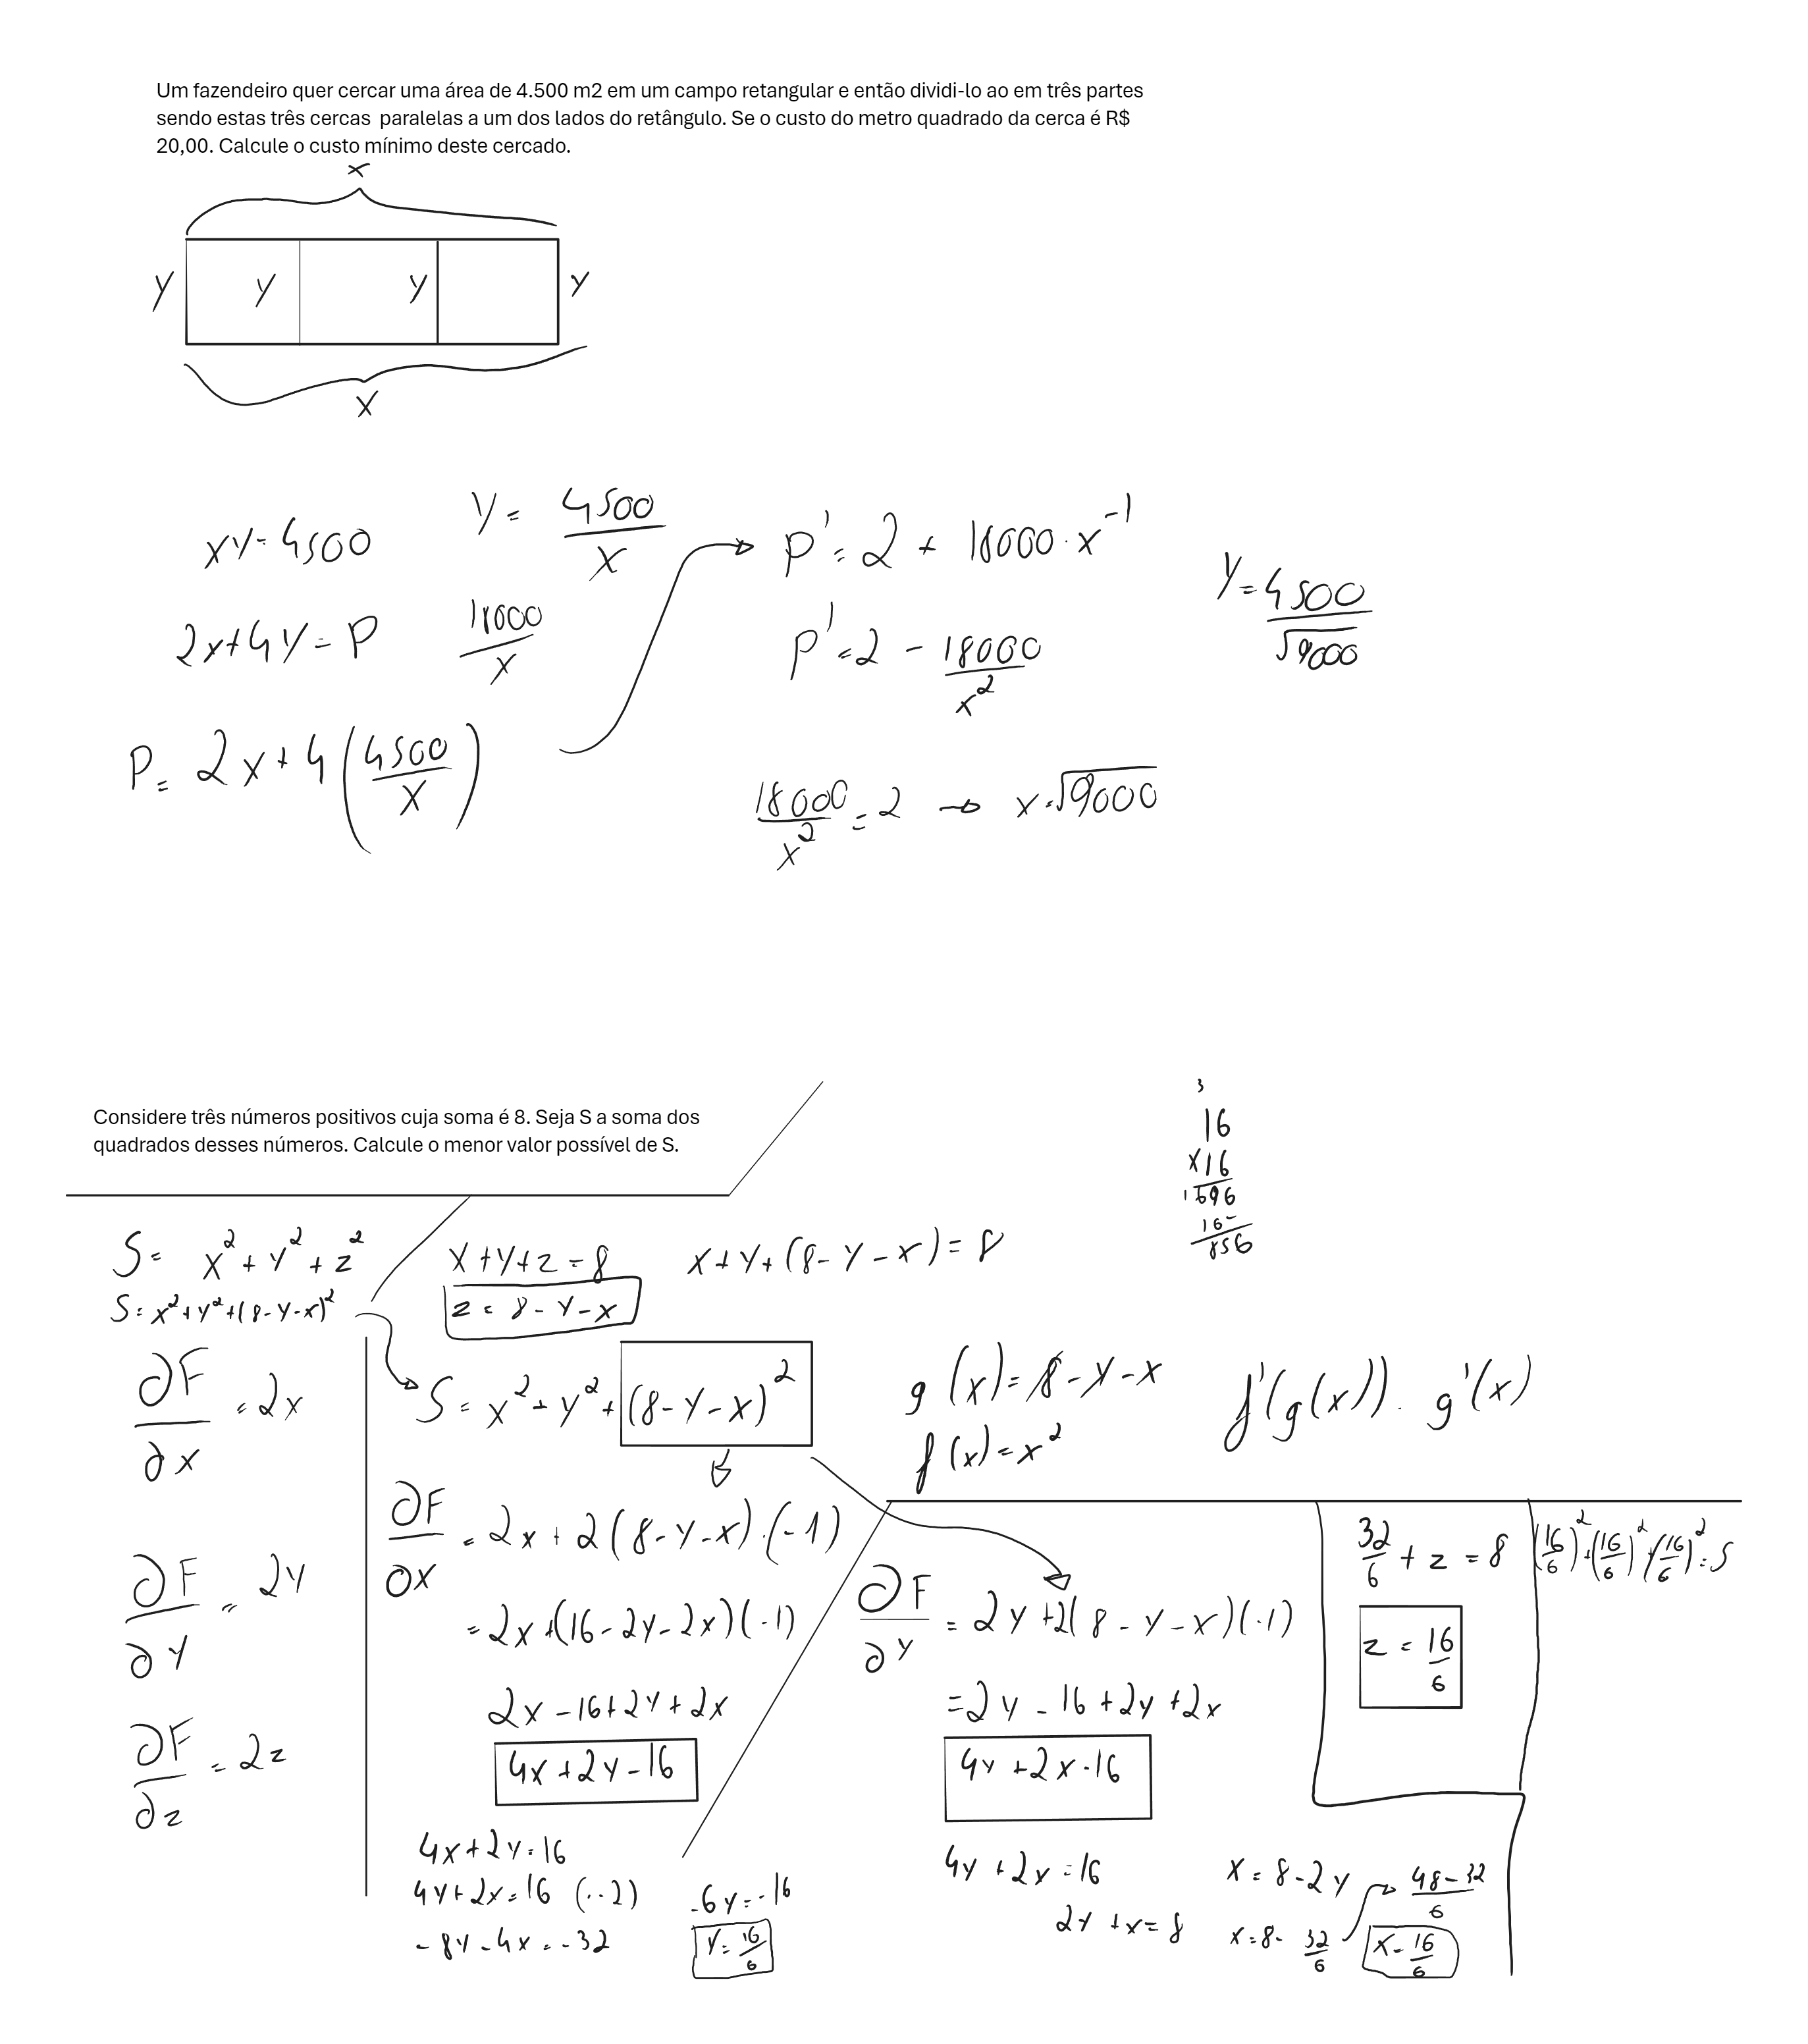 Um fazendeiro quer cercar uma área de 4.500 m2 em um campo retangular e então dividi-lo ao em três partes
sendo estas três cercas  paralelas a um dos lados do retângulo. Se o custo do metro quadrado da cerca é R$
20,00. Calcule o custo mínimo deste cercado.
x
y y y y
x
xy = 4500
y = 4500/x
2x + 4y = P
18000/x
P = 2x + 4(4500/x)
P' = 2 + 18000 · x^-1
P' = 2 - 18000/x^2
18000/x^2 = 2 → x = √9000
y = 4500/√9000
Considere três números positivos cuja soma é 8. Seja S a soma dos
quadrados desses números. Calcule o menor valor possível de S.
3
16
x16
16-
S = x^2 + y^2 + z^2
S = x^2 + y^2 + (8-y-x)^2
x + y + z = 8
z = 8 - y - x
x + y + (8 - y - x) = 8
∂F/∂x = 2x
∂F/∂y = 2y
∂F/∂z = 2z
S = x^2 + y^2 + (8-y-x)^2
g(x) = 8 - y - x
f(x) = x^2
f'(g(x)) · g'(x)
∂F/∂x = 2x + 2(8-y-x)·(-1)
= 2x + (16 - 2y - 2x)(-1)
2x - 16 + 2y + 2x
4x + 2y - 16
4x + 2y = 16
4y + 2x = 16 (·-2)
-8y - 4x = -32
-6y = -16
y = 16/6
∂F/∂y = 2y + 2(8 - y - x)(-1)
= 2y - 16 + 2y + 2x
4y + 2x - 16
4y + 2x = 16
2y + x = 8
x = 8 - 2y
x = 8 - 32/6
48 - 32/6
x = 16/6
32/6 + z = 8
z = 16/6
(16/6)^2 + (16/6)^2 + (16/6)^2 = S